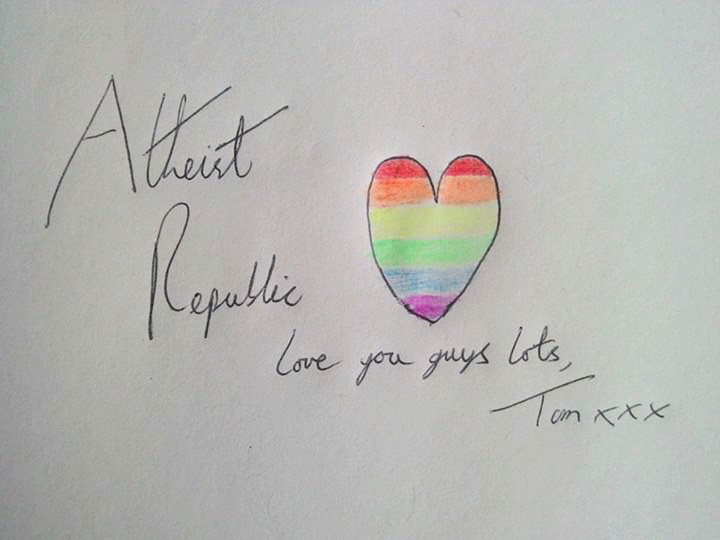 Atheist
Republic
love you guys lots,
Tom xxx